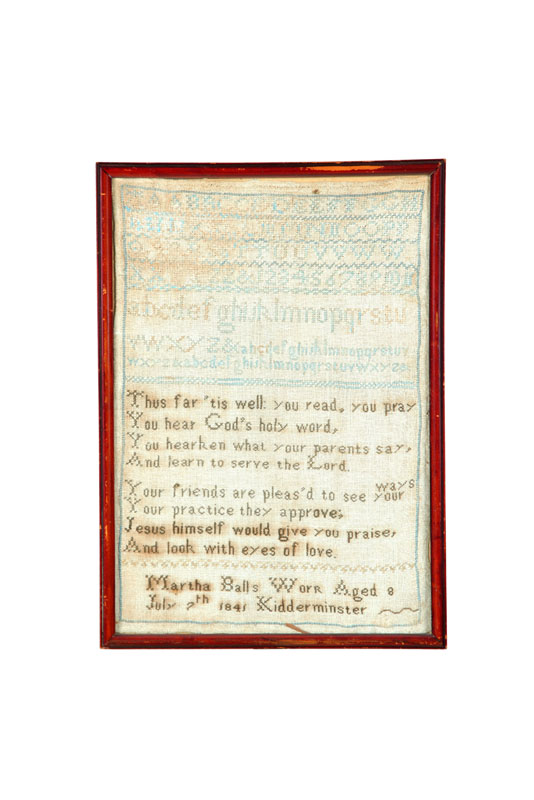 abcdefghijklmnopqrstu
vwXYZ&abcdefghijklmnopqrstuv
wxyz&abcdefghijklmnopqrstuvwxyz&
Thus far 'tis well: you read, you pray
You hear God's holy word,
You hearken what your parents say,
And learn to serve the Lord.
Your friends are pleas'd to see your ways
Your practice they approve;
Jesus himself would give you praise,
And look with eyes of love.
Martha Balls Work Aged 8
July 7th 1841 Kidderminster